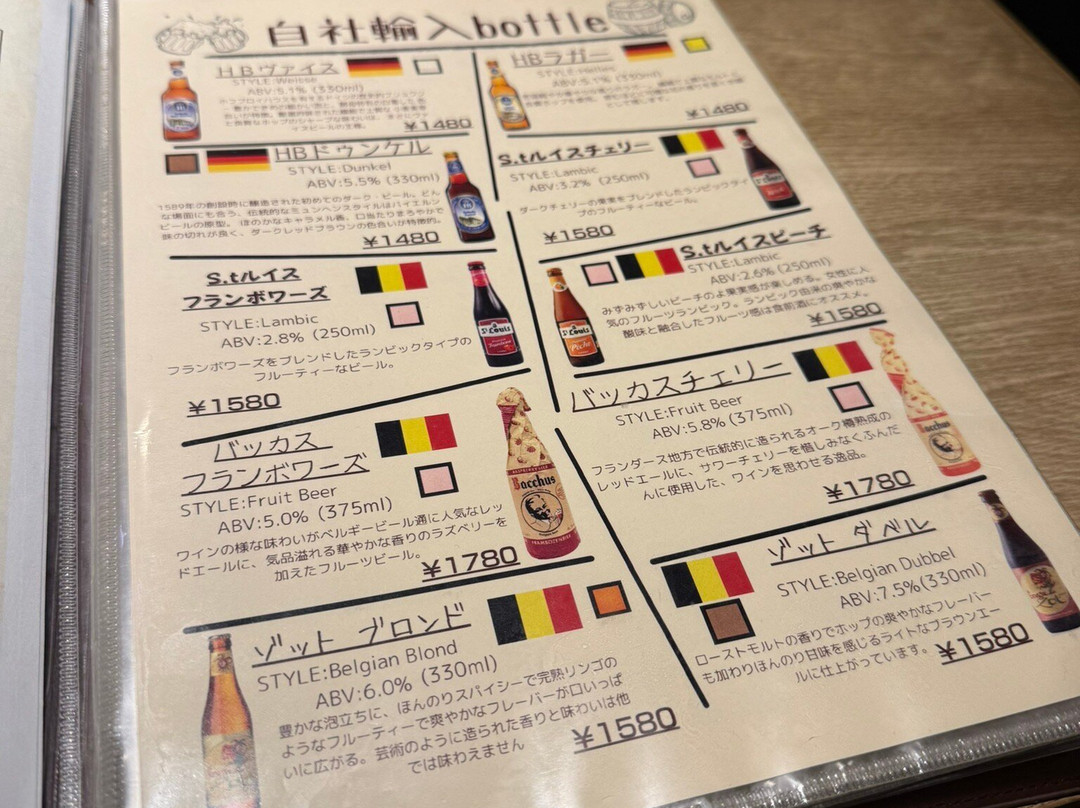 自社輸入bottle
HBヴァイス
STYLE:Weisse
ABV:5.1% (330ml)
¥1480
HBラガー
ABV:5.1% (330ml)
¥1480
HBドゥンケル
STYLE:Dunkel
ABV:5.5% (330ml)
1589年の創設時に醸造された初めてのダーク・ビール。どん
な場面にも合う、伝統的なミュンヘンスタイルはバイエルン
ビールの原型。ほのかなキャラメル香、口当たりまろやかで
味の切れが良く、ダークレッドブラウンの色合いが特徴的。
¥1480
S.tルイスチェリー
STYLE:Lambic
ABV:3.2% (250ml)
ダークチェリーの果実をブレンドしたランビックタイ
プのフルーティーなビール。
¥1580
S.tルイス
フランボワーズ
STYLE:Lambic
ABV:2.8% (250ml)
フランボワーズをブレンドしたランビックタイプの
フルーティーなビール。
¥1580
St Louis
S.tルイスピーチ
STYLE:Lambic
ABV:2.6% (250ml)
みずみずしいピーチのよ果実感が楽しめる。女性に人
気のフルーツランビック。ランビック由来の爽やかな
酸味と融合したフルーツ感は食前酒にオススメ。
¥1580
St Louis
Pêche
バッカス
フランボワーズ
STYLE:Fruit Beer
ABV:5.0% (375ml)
ワインの様な味わいがベルギービール通に人気なレッ
ドエールに、気品溢れる華やかな香りのラズベリーを
加えたフルーツビール。
¥1780
Bacchus
FRAMBOZENBIER
バッカスチェリー
STYLE:Fruit Beer
ABV:5.8% (375ml)
フランダース地方で伝統的に造られるオーク樽熟成の
レッドエールに、サワーチェリーを惜しみなくふんだ
んに使用した、ワインを思わせる逸品。
¥1780
Bacchus
ゾット ブロンド
STYLE:Belgian Blond
ABV:6.0% (330ml)
豊かな泡立ちに、ほんのりスパイシーで完熟リンゴの
ようなフルーティーで爽やかなフレーバーが口いっぱ
いに広がる。芸術のように造られた香りと味わいは他
では味わえません
¥1580
ゾット ダベル
STYLE:Belgian Dubbel
ABV:7.5%(330ml)
ローストモルトの香りでホップの爽やかなフレーバー
も加わりほんのり甘味を感じるライトなブラウンエー
ルに仕上がっています。
¥1580